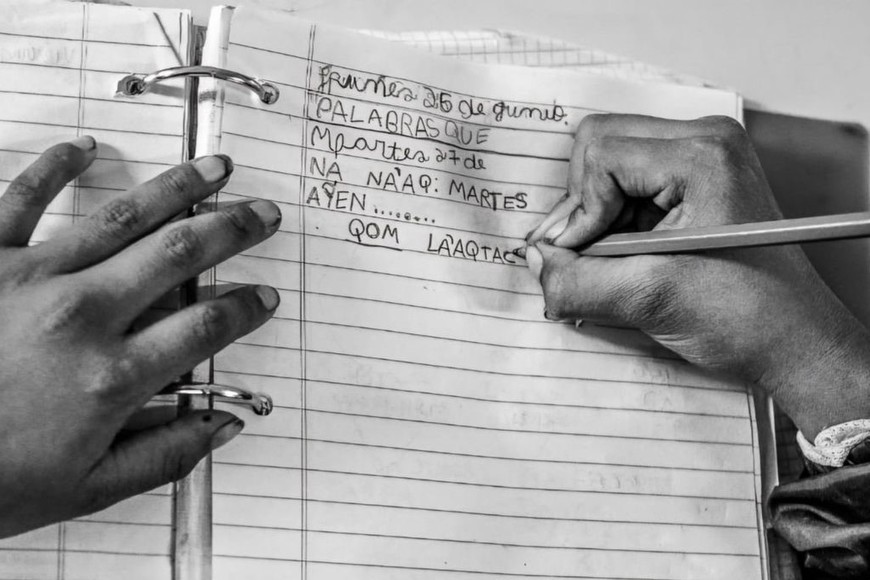 Lunes 26 de junio.
PALABRAS QUE
Martes 27 de
NA NA'AQ: MARTES
AỲEN ........
QOM LA'AQTAC